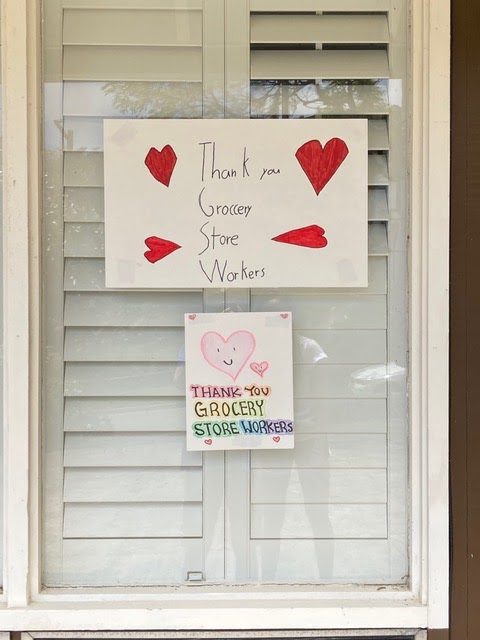 Thank you
Grocery
Store
Workers
THANK YOU
GROCERY
STORE WORKERS